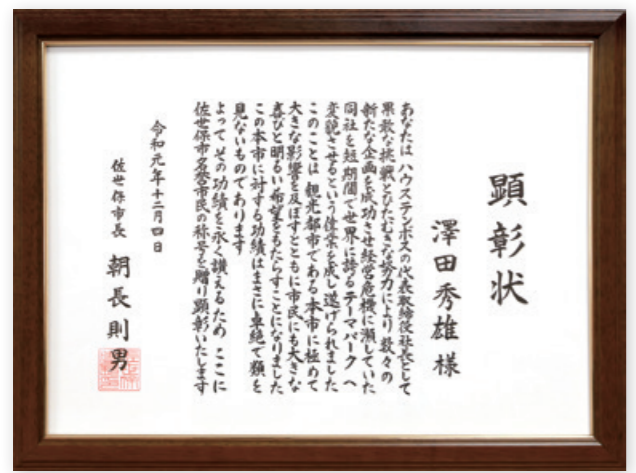 顕彰状
澤田秀雄様
あなたはハウステンボスの代表取締役社長として
果敢な挑戦とひたむきな努力により数々の
新たな企画を成功させ経営危機に瀕していた
同社を短期間で世界に誇るテーマパークへ
変貌させるという偉業を成し遂げられました
このことは観光都市である本市に極めて
大きな影響を及ぼすとともに市民にも大きな
喜びと明るい希望をもたらすことになりました
この本市に対する功績はまさに卓絶で類を
見ないものであります
よってその功績を永く讃えるためここに
佐世保市名誉市民の称号を贈り顕彰いたします
令和元年十二月四日
佐世保市長 朝長則男